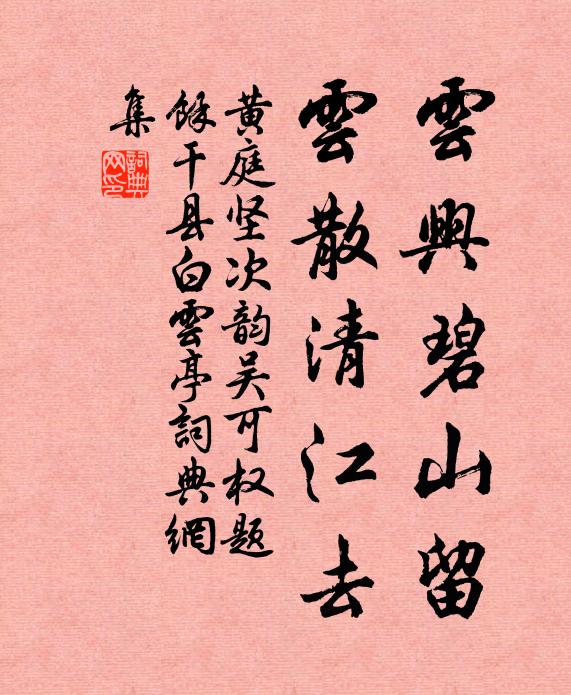 雲興碧山留
雲散清江去
黄庭坚次韵吴可权题
餘干县白雲亭詞典網
集
詞典
网印